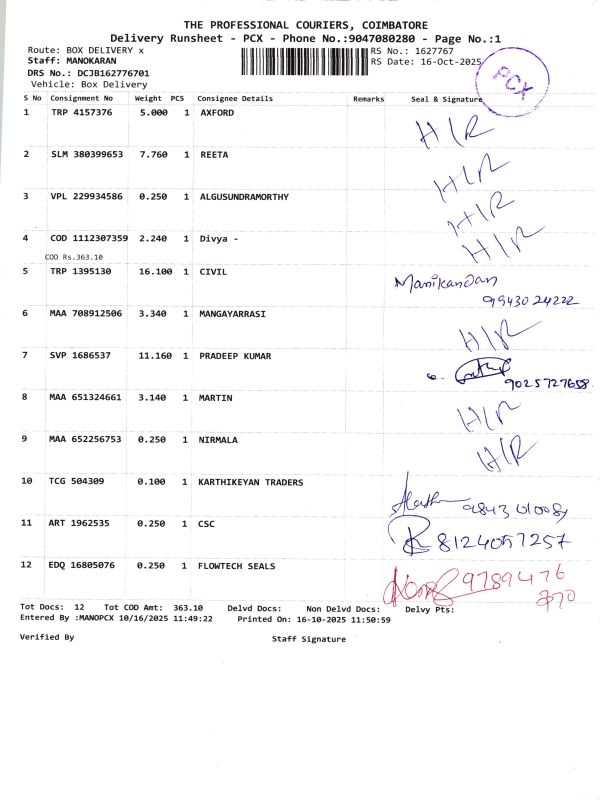 THE PROFESSIONAL COURIERS, COIMBATORE
Delivery Runsheet - PCX - Phone No.:9047080280 - Page No.:1
Route: BOX DELIVERY x RS No.: 1627767
Staff: MANOKARAN RS Date: 16-Oct-2025
DRS No.: DCJB162776701
Vehicle: Box Delivery
PCX
S No Consignment No Weight PCS Consignee Details Remarks Seal & Signature
1 TRP 4157376 5.000 1 AXFORD H/R
2 SLM 380399653 7.760 1 REETA H/R
3 VPL 229934586 0.250 1 ALGUSUNDRAMORTHY H/R
4 COD 1112307359 2.240 1 Divya - H/R
COD Rs.363.10
5 TRP 1395130 16.100 1 CIVIL Manikandan
9943024222
6 MAA 708912506 3.340 1 MANGAYARRASI H/R
7 SVP 1686537 11.160 1 PRADEEP KUMAR
9025727658
8 MAA 651324661 3.140 1 MARTIN H/R
9 MAA 652256753 0.250 1 NIRMALA H/R
10 TCG 504309 0.100 1 KARTHIKEYAN TRADERS
11 ART 1962535 0.250 1 CSC 8124057257
12 EDQ 16805076 0.250 1 FLOWTECH SEALS 9789476
370
Tot Docs: 12 Tot COD Amt: 363.10 Delvd Docs: Non Delvd Docs: Delvy Pts:
Entered By :MANOPCX 10/16/2025 11:49:22 Printed On: 16-10-2025 11:50:59
Verified By Staff Signature